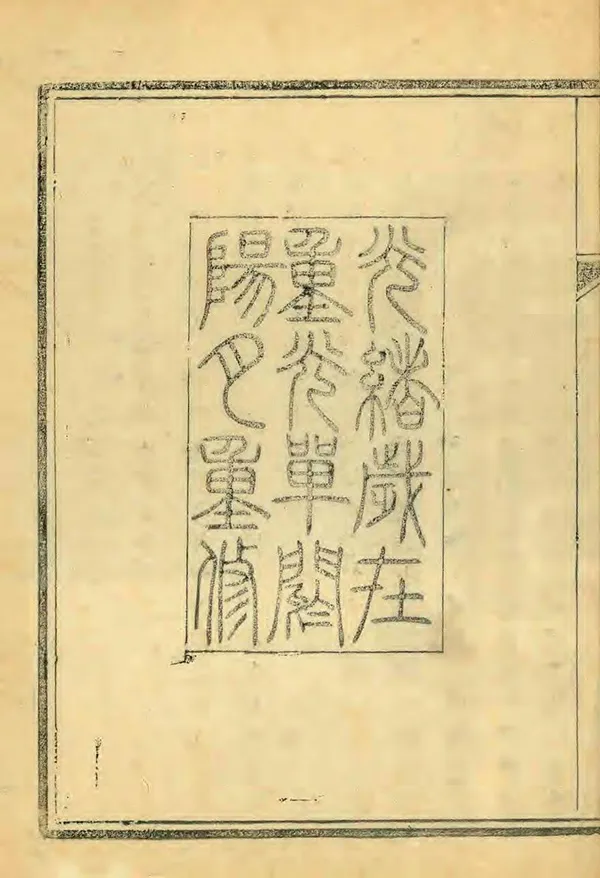 光緒歲在
重光單閼
陽月重修